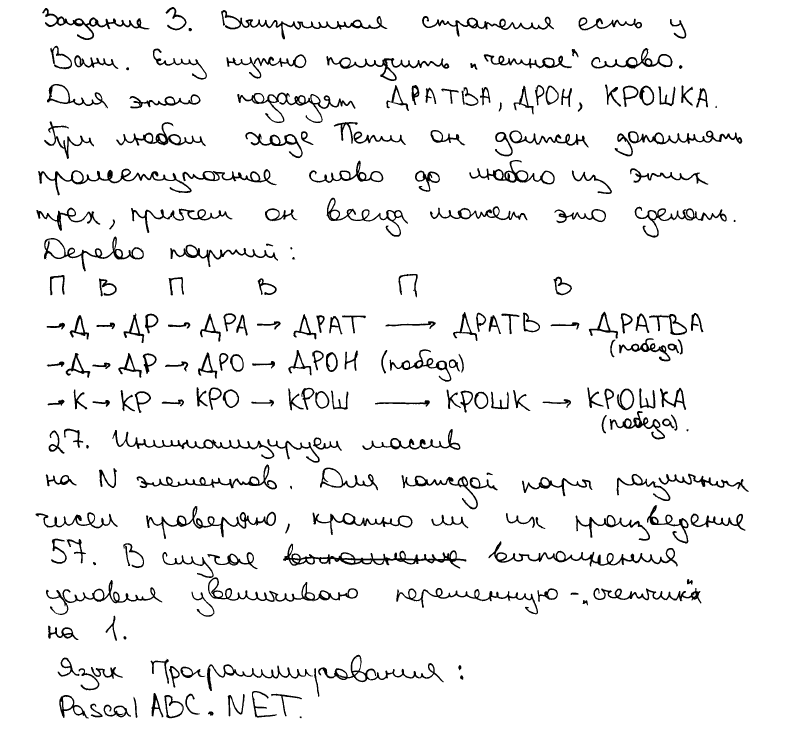 Задание 3. Выигрышная стратегия есть у
Вани. Ему нужно получить „четное" слово.
Для этого подходят ДРАТВА, ДРОН, КРОШКА.
При любом ходе Пети он должен дополнять
промежуточное слово до любого из этих
трех, причем он всегда может это сделать.
Дерево партий:
П В П В П В
→Д→ДР→ДРА→ДРАТ → ДРАТВ → ДРАТВА
(победа)
→Д→ДР→ДРО→ДРОН (победа)
→К→КР→КРО→КРОШ → КРОШК → КРОШКА
(победа).
27. Инициализируем массив
на N элементов. Для каждой пары различных
чисел проверяю, кратно ли их произведение
57. В случае выполнения
условия увеличиваю переменную-„счетчик"
на 1.
Язык Программирования:
Pascal ABC. NET.